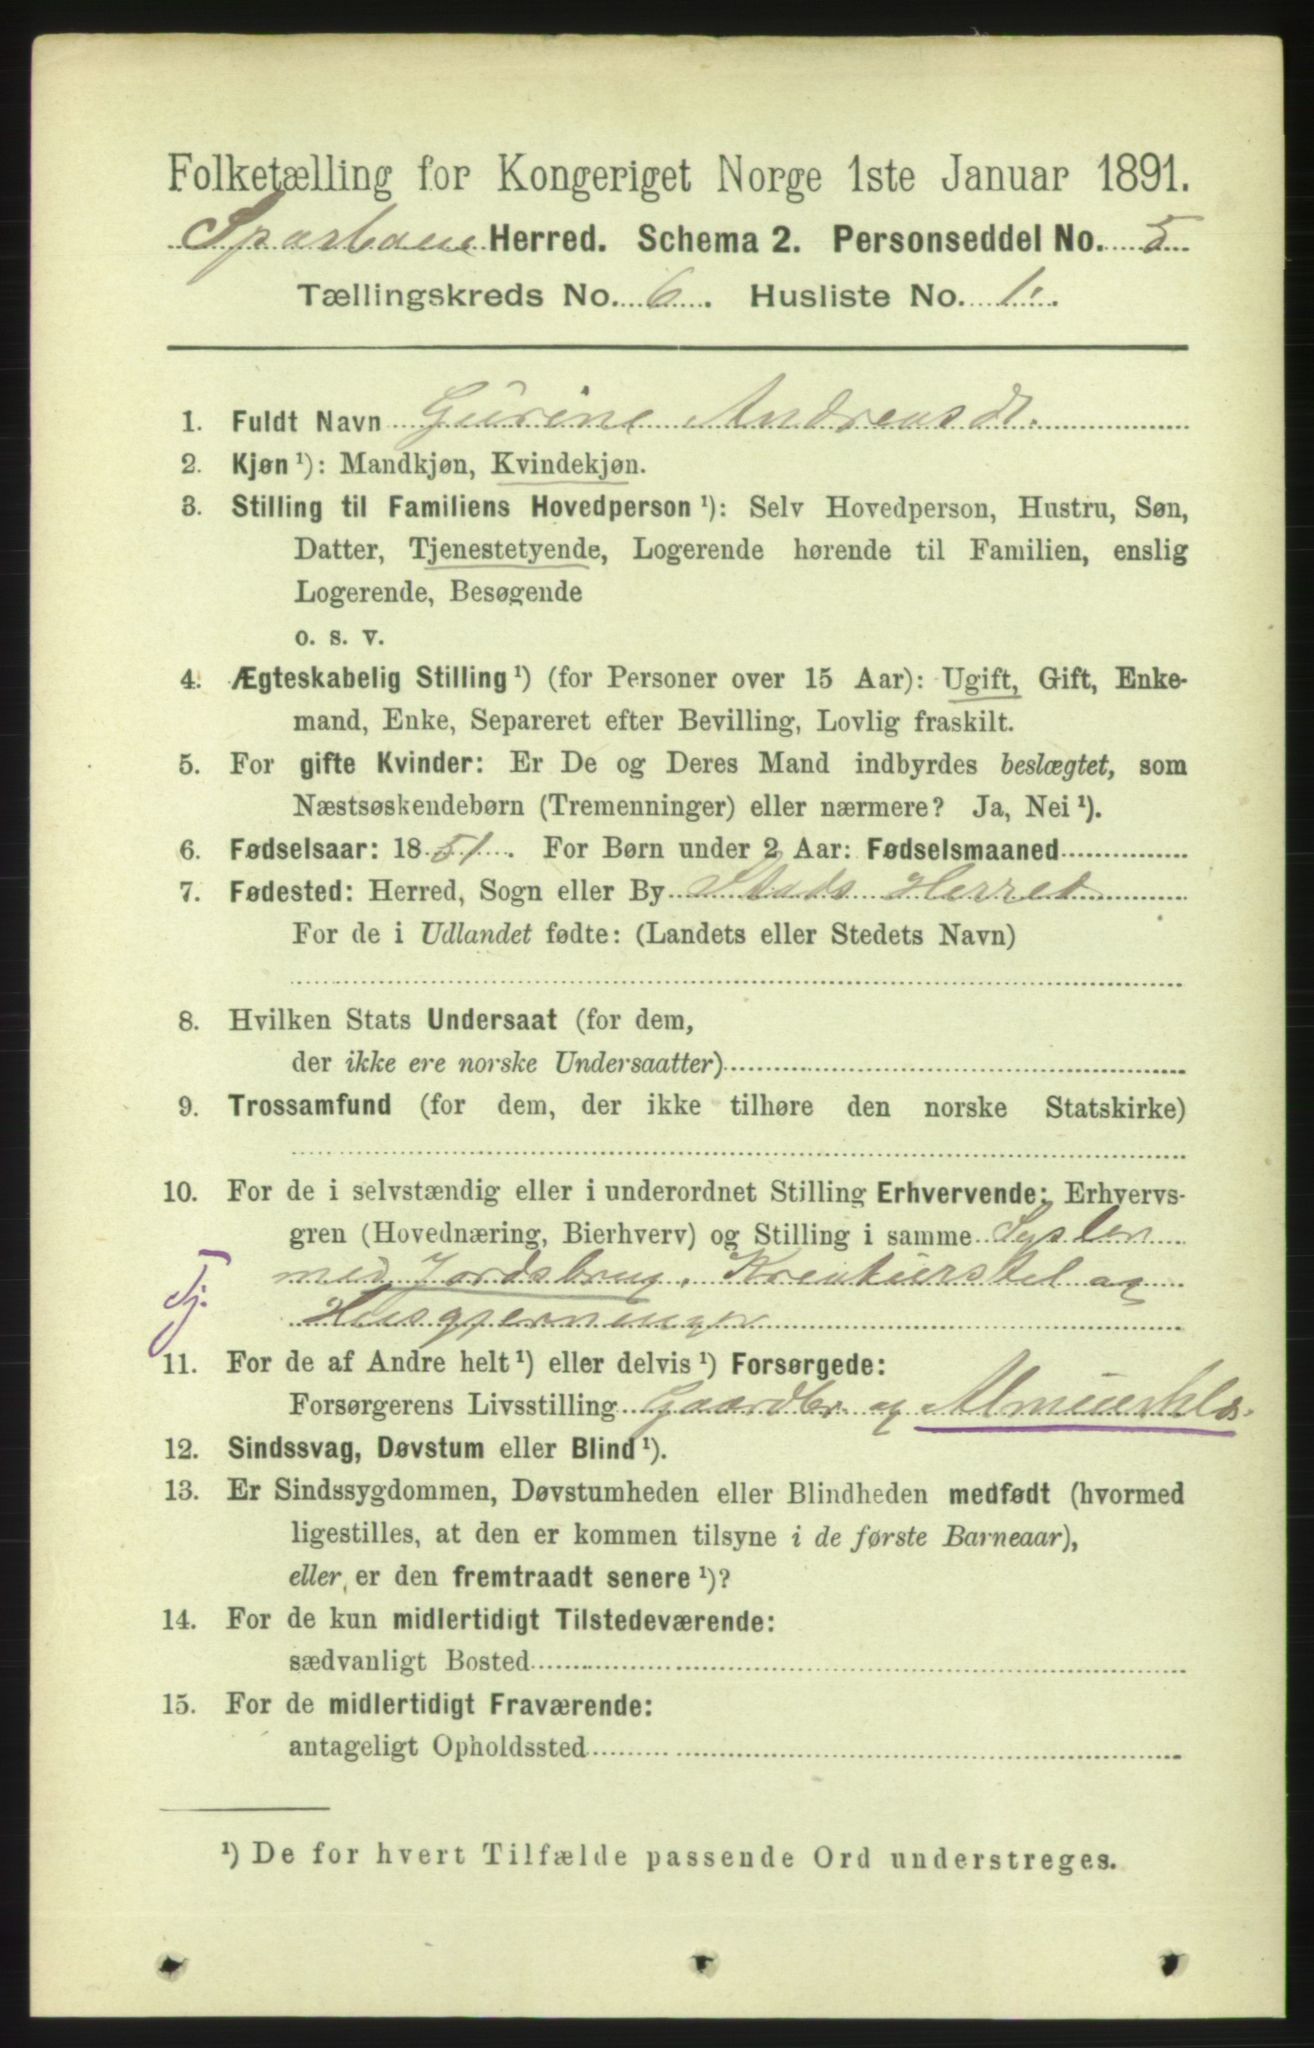 Folketælling for Kongeriget Norge 1ste Januar 1891.
Sparbuen Herred. Schema 2. Personseddel No. 5
Tællingskreds No. 6. Husliste No. 1.
1. Fuldt Navn Gurine Andreasdt.
2. Kjøn ¹): Mandkjøn, Kvindekjøn.
3. Stilling til Familiens Hovedperson ¹): Selv Hovedperson, Hustru, Søn,
Datter, Tjenestetyende, Logerende hørende til Familien, enslig
Logerende, Besøgende
o. s. v.
4. Ægteskabelig Stilling ¹) (for Personer over 15 Aar): Ugift, Gift, Enke-
mand, Enke, Separeret efter Bevilling, Lovlig fraskilt.
5. For gifte Kvinder: Er De og Deres Mand indbyrdes beslægtet, som
Næstsøskendebørn (Tremenninger) eller nærmere? Ja, Nei ¹).
6. Fødselsaar: 1851. For Børn under 2 Aar: Fødselsmaaned
7. Fødested: Herred, Sogn eller By Stods Herred
For de i Udlandet fødte: (Landets eller Stedets Navn)
8. Hvilken Stats Undersaat (for dem,
der ikke ere norske Undersaatter)
9. Trossamfund (for dem, der ikke tilhøre den norske Statskirke)
10. For de i selvstændig eller i underordnet Stilling Erhvervende: Erhvervs-
gren (Hovednæring, Bierhverv) og Stilling i samme Syslen
med Jordsbrug, Kreaturstel og
Tj.
Husgjerninger
11. For de af Andre helt ¹) eller delvis ¹) Forsørgede:
Forsørgerens Livsstilling Gaardbr. og
12. Sindssvag, Døvstum eller Blind ¹).
13. Er Sindssygdommen, Døvstumheden eller Blindheden medfødt (hvormed
ligestilles, at den er kommen tilsyne i de første Barneaar),
eller er den fremtraadt senere ¹)?
14. For de kun midlertidigt Tilstedeværende:
sædvanligt Bosted
15. For de midlertidigt Fraværende:
antageligt Opholdssted
¹) De for hvert Tilfælde passende Ord understreges.